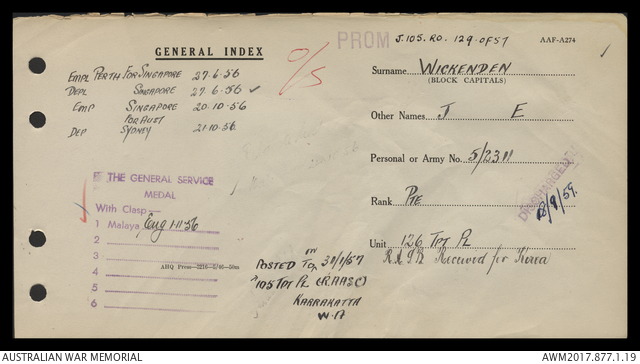 GENERAL INDEX
EMPL PERTH FOR SINGAPORE 27.6.56
DEPL SINGAPORE 27.6.56 ✓
EMP SINGAPORE 20.10.56
FOR AUST
DEP SYDNEY 21.10.56
O/S
THE GENERAL SERVICE
MEDAL
With Clasp
1 Malaya Eng 1-11-56
2
3
4
5
6
AHQ Press
POSTED TO ON 30/1/57
105 TPT PL (RAASC)
KARRAKATTA
W.A
PROM J.105.RO. 129 OF 57
AAF-A274
Surname WICKENDEN
(BLOCK CAPITALS)
Other Names J E
Personal or Army No. 5/2311
Rank PTE
DISCHARGED
18/9/59.
Unit 126 TPT PL
Received for Korea
AUSTRALIAN WAR MEMORIAL
AWM2017.877.1.19